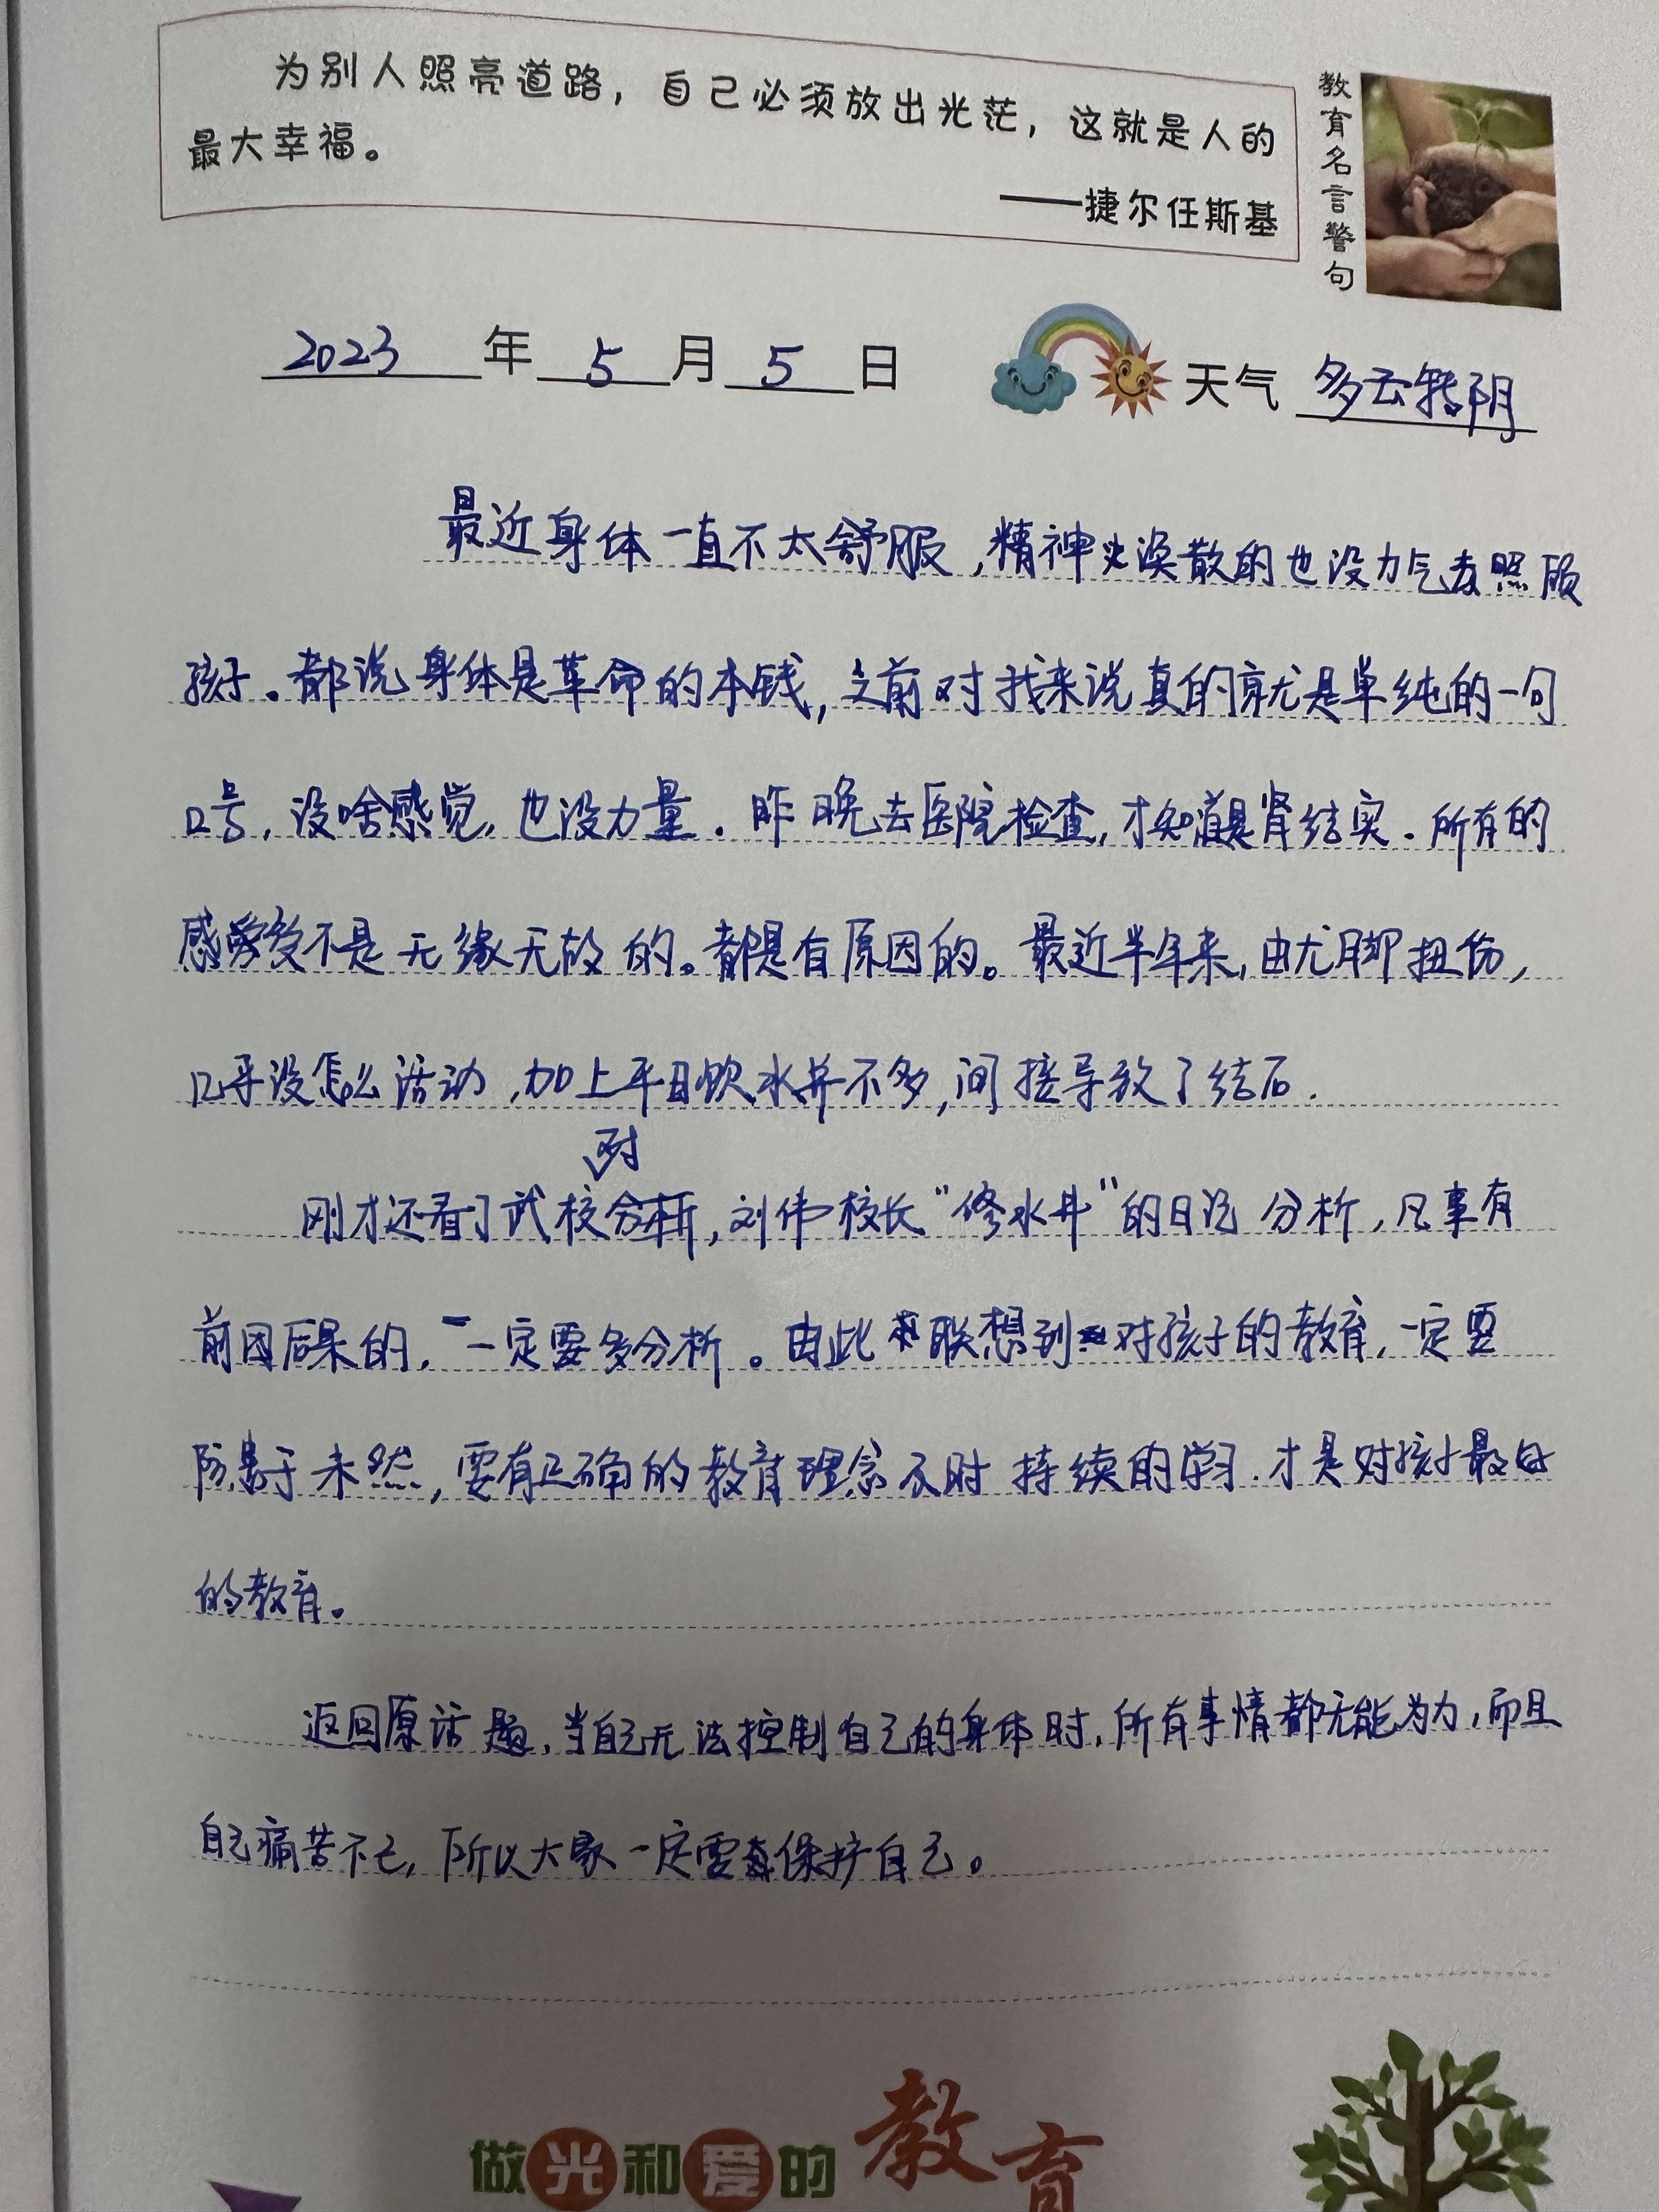 为别人照亮道路，自己必须放出光茫，这就是人的
最大幸福。
——捷尔任斯基
教育名言警句
2023年5月5日 天气 多云转阴
最近身体一直不太舒服，精神涣散的也没力气去照顾
孩子。都说身体是革命的本钱，之前对我来说真的就是单纯的一句
口号，没啥感觉，也没力量．昨晚去医院检查，才知道是肾结实．所有的
感受不是无缘无故的。都是有原因的。最近半年来，由尤脚扭伤，
几乎没怎么活动，加上平日饮水并不多，间接导致了结石．
对
刚才还看了武校，刘伟校长“修水井”的日记分析，凡事有
前因后果的，一定要多分析。由此联想到对孩子的教育，一定要
防患于未然，要有正确的教育理念及时持续的学习．才是对孩子最好
的教育。
返回原话题，当自己无法控制自己的身体时，所有事情都无能为力，而且
自己痛苦不已，所以大家一定要保护自己。
做光和爱的教育